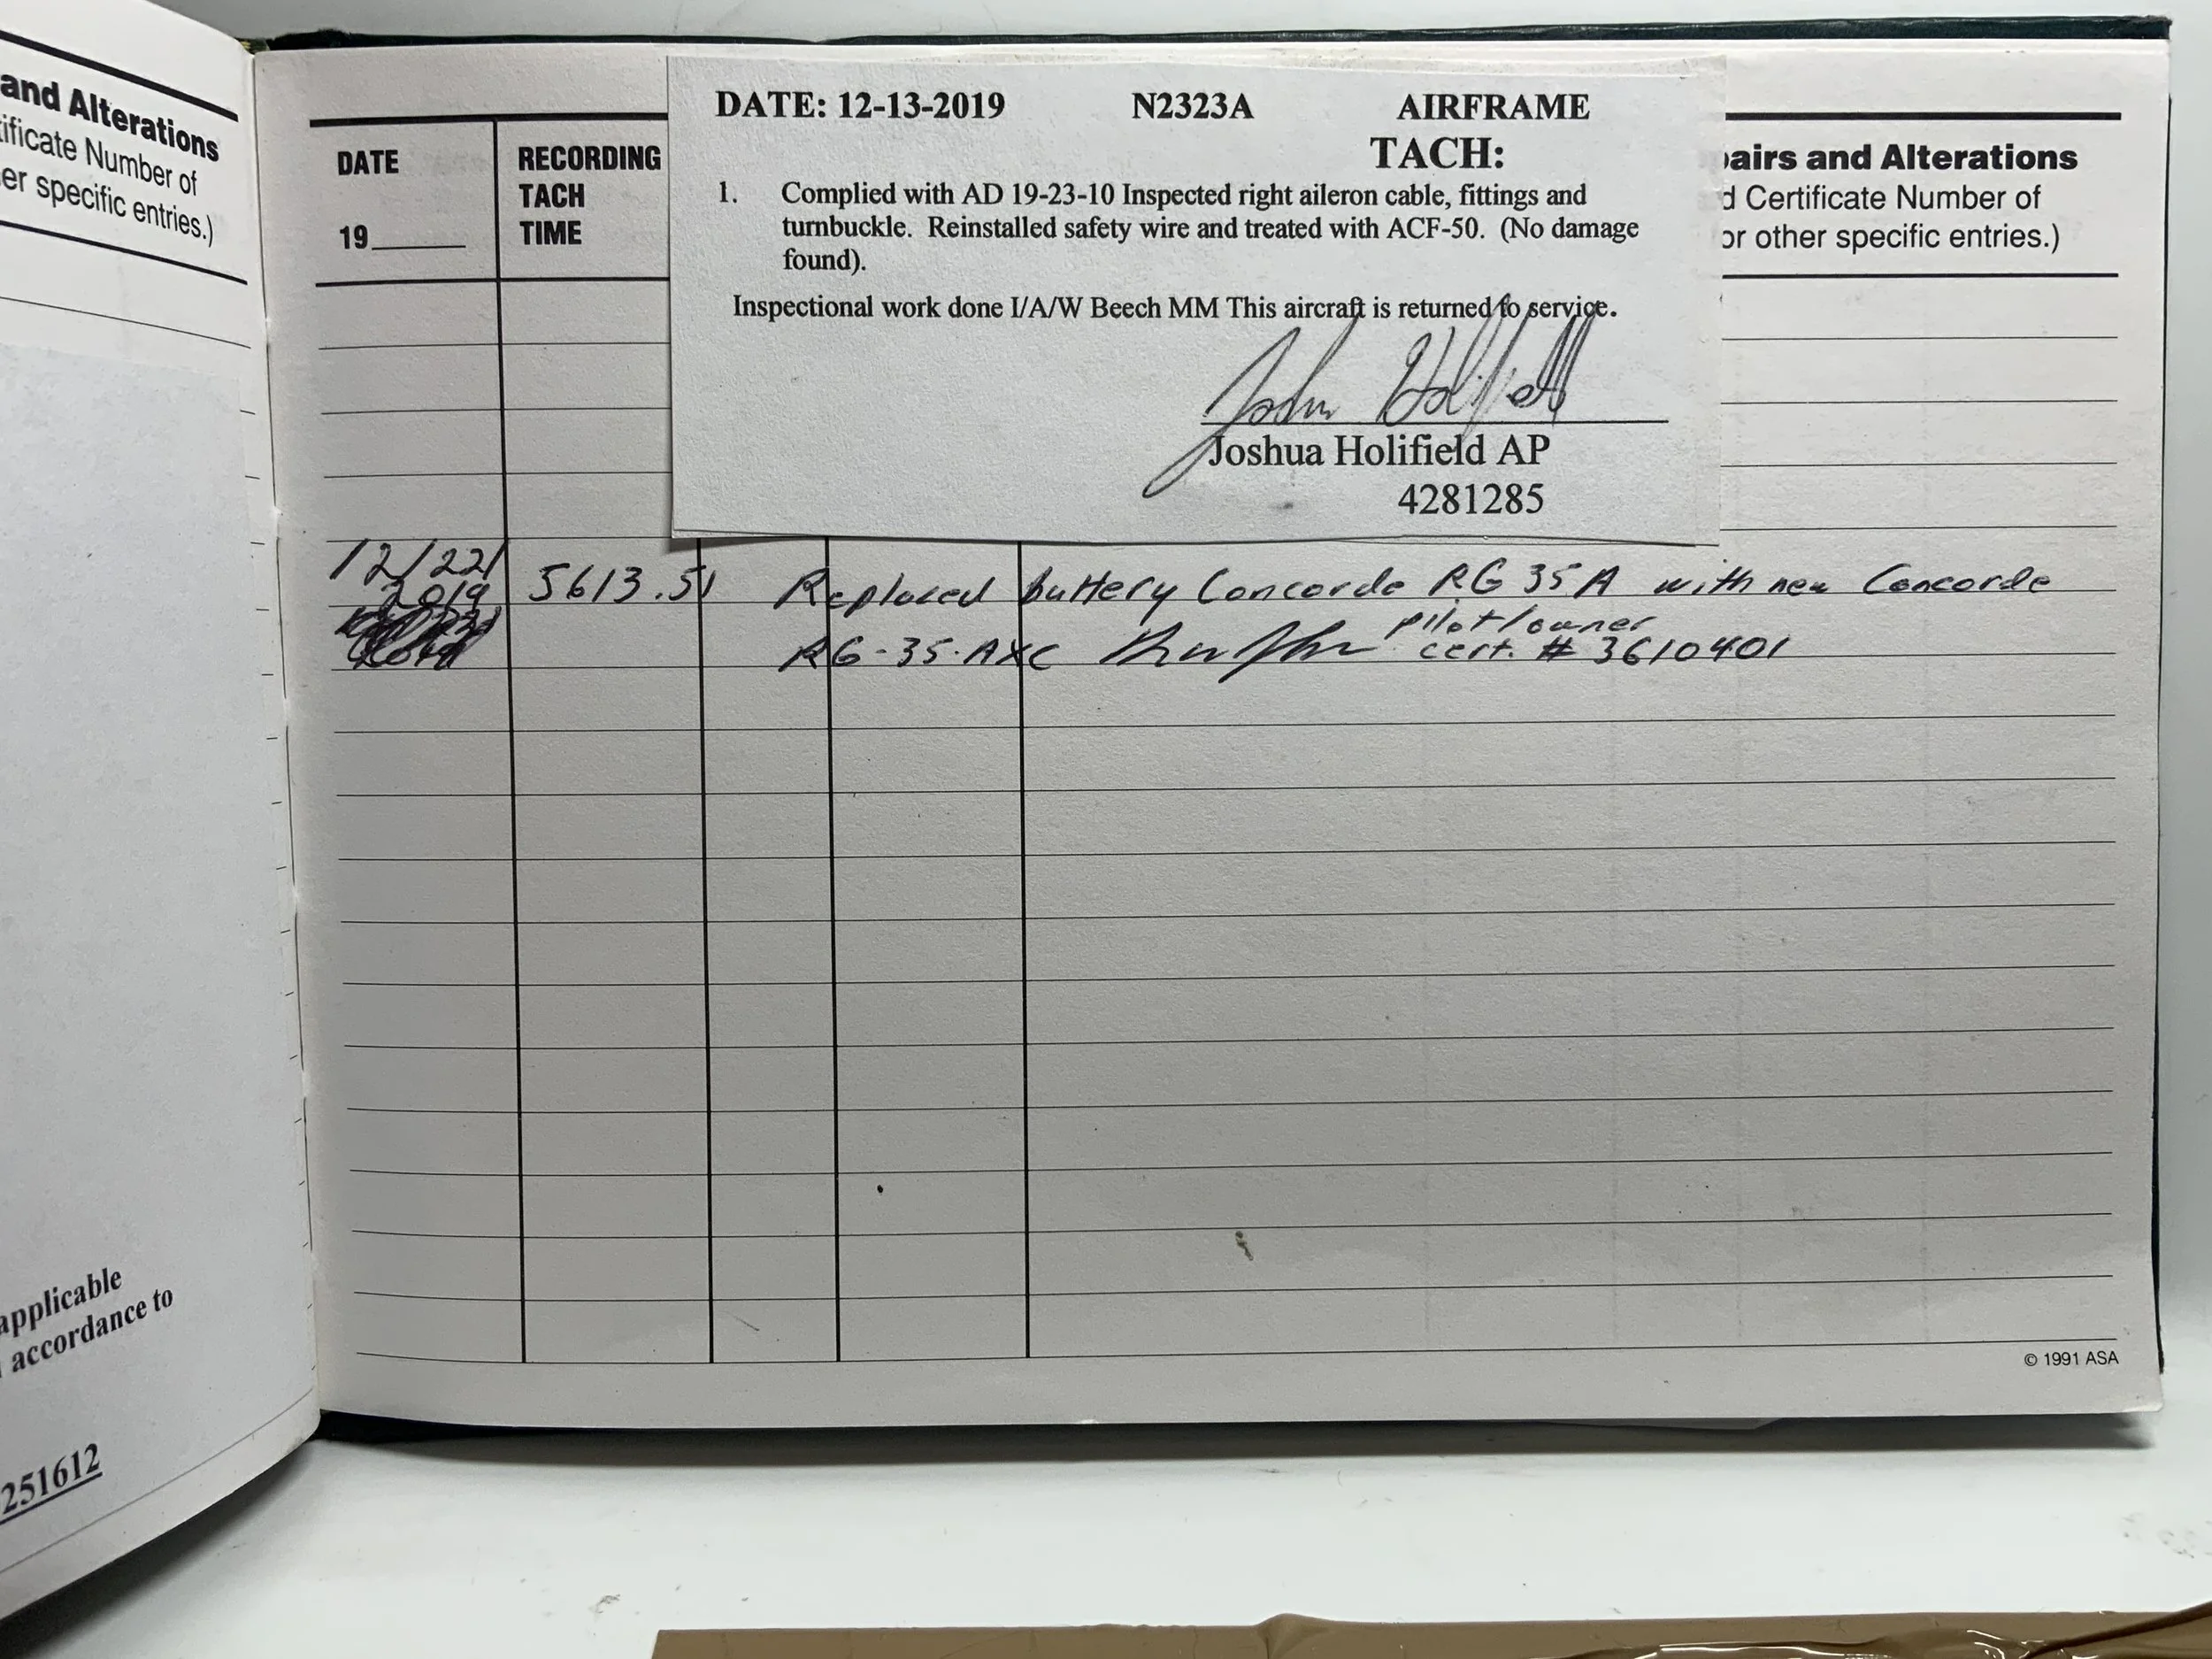 and Alterations
ificate Number of
er specific entries.)
applicable
accordance to
251612
DATE
19
RECORDING
TACH
TIME
DATE: 12-13-2019 N2323A AIRFRAME
TACH:
1. Complied with AD 19-23-10 Inspected right aileron cable, fittings and
turnbuckle. Reinstalled safety wire and treated with ACF-50. (No damage
found).
Inspectional work done I/A/W Beech MM This aircraft is returned to service.
Josh Holifield
Joshua Holifield AP
4281285
pairs and Alterations
d Certificate Number of
or other specific entries.)
12/22/ 5613.51 Replaced battery Concorde RG 35A with new Concorde
2019
pilot/owner
RG-35-AXC cert. # 3610401
© 1991 ASA